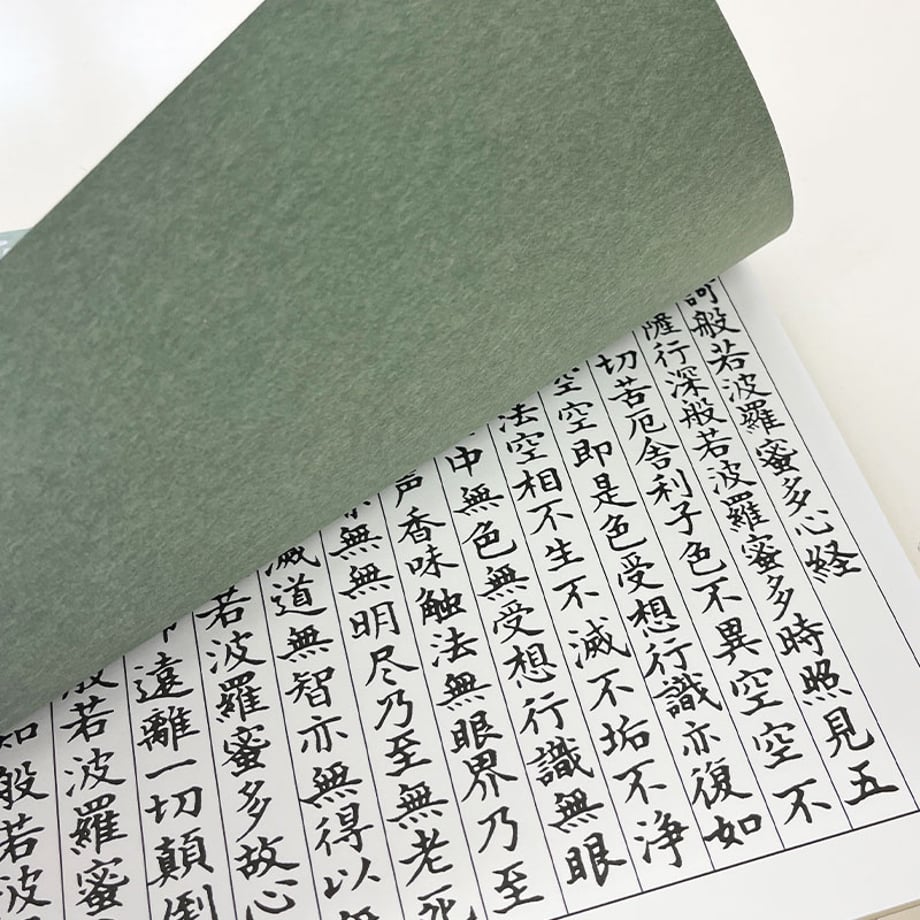 訶般若波羅蜜多心経
薩行深般若波羅蜜多時照見五
切苦厄舎利子色不異空空不
空空即是色受想行識亦復如
法空相不生不滅不垢不浄
中無色無受想行識無眼
声香味触法無眼界乃至
無無明尽乃至無老死
滅道無智亦無得以無
若波羅蜜多故心
遠離一切顛倒
般若波羅蜜
知般若波